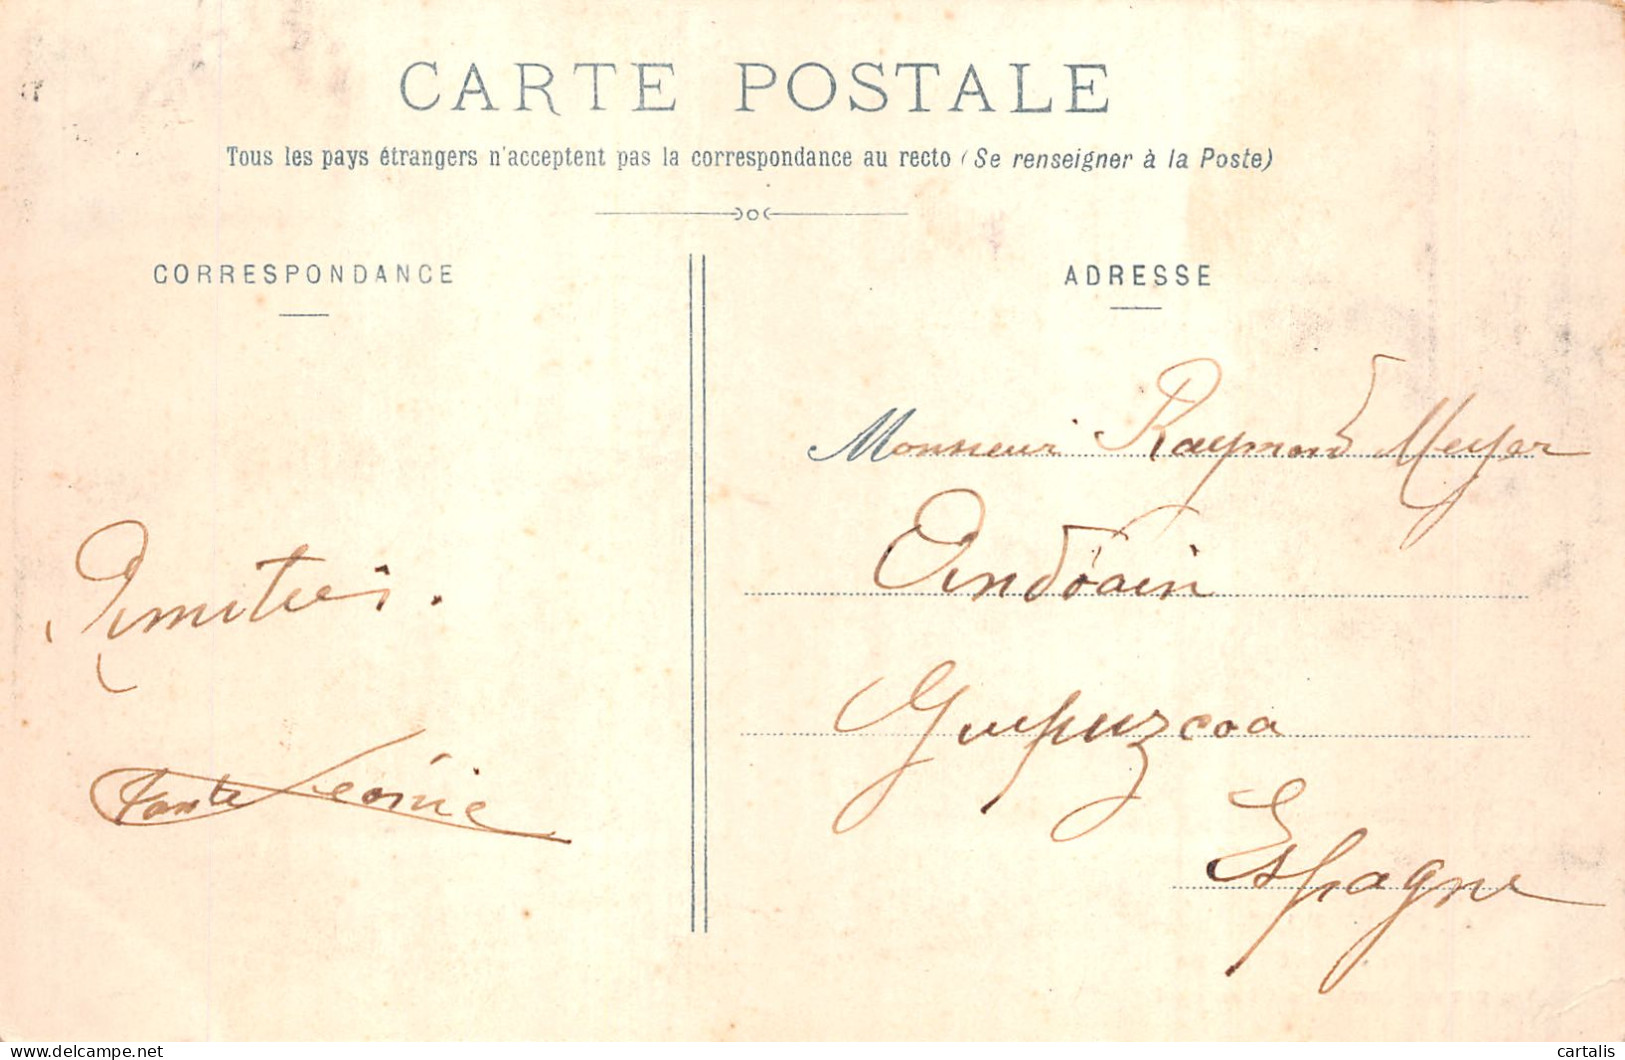 CARTE POSTALE
Tous les pays étrangers n'acceptent pas la correspondance au recto (Se renseigner à la Poste)
CORRESPONDANCE
Amitiés.
Tante Léonie
ADRESSE
Monsieur Raymond Meyer
Andoain
Guipuzcoa
Espagne
https://www.delcampe.net
cartalis